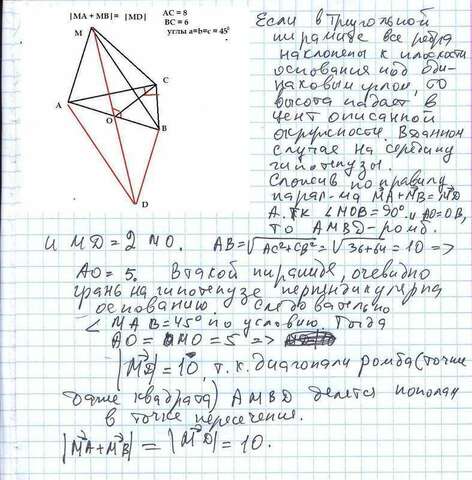 |MA + MB| = |MD|
AC = 8
BC = 6
углы a=b=c = 45°
M
C
A
O
B
D
Если в треугольной
пирамиде все ребра
наклонены к плоскости
основания под оди-
наковым углом, то
высота падает в
цент описанной
окружности. В данном
случае на середину
гипотенузы.
Сложив по правилу
парал-ма MA+MB=MD
А.т.к ∠MOB=90° и AO=OB,
то AMBD-ромб.
и MD=2MO. AB=√AC²+CB²=√36+64=10 =>
AO=5. В такой пирамиде, очевидно
грань на гипотенузе перпендикулярна
основанию. Следовательно
∠MAB=45° по условию. Тогда
AO = MO = 5 =>
|MD|=10, т.к. диагонали ромба (точнее
даже квадрата) AMBD делятся пополам
в точке пересечения.
|MA+MB| = |MD| = 10.